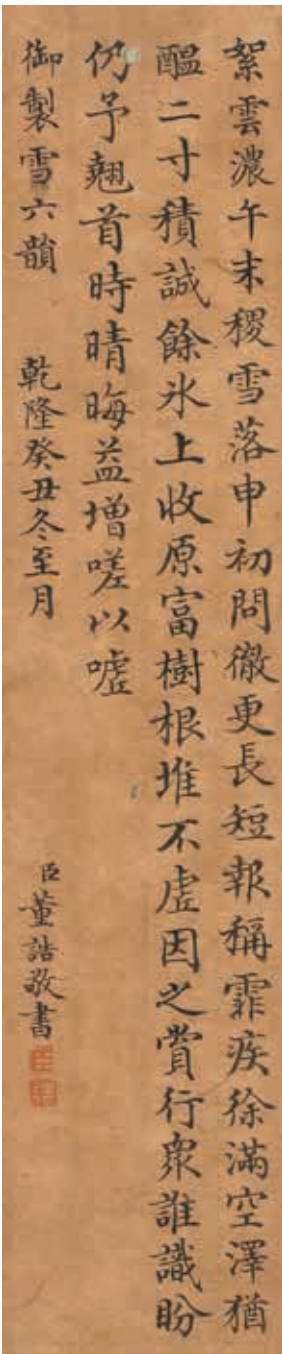 絮雲濃午末稷雪落申初問徹更長短報稱霏疾徐滿空澤猶
醖二寸積誠餘氷上收原富樹根堆不虛因之賞行衆誰識盼
仍予翹首時晴晦益增嗟以噓
御製雪六韻 乾隆癸丑冬至月 臣董誥敬書